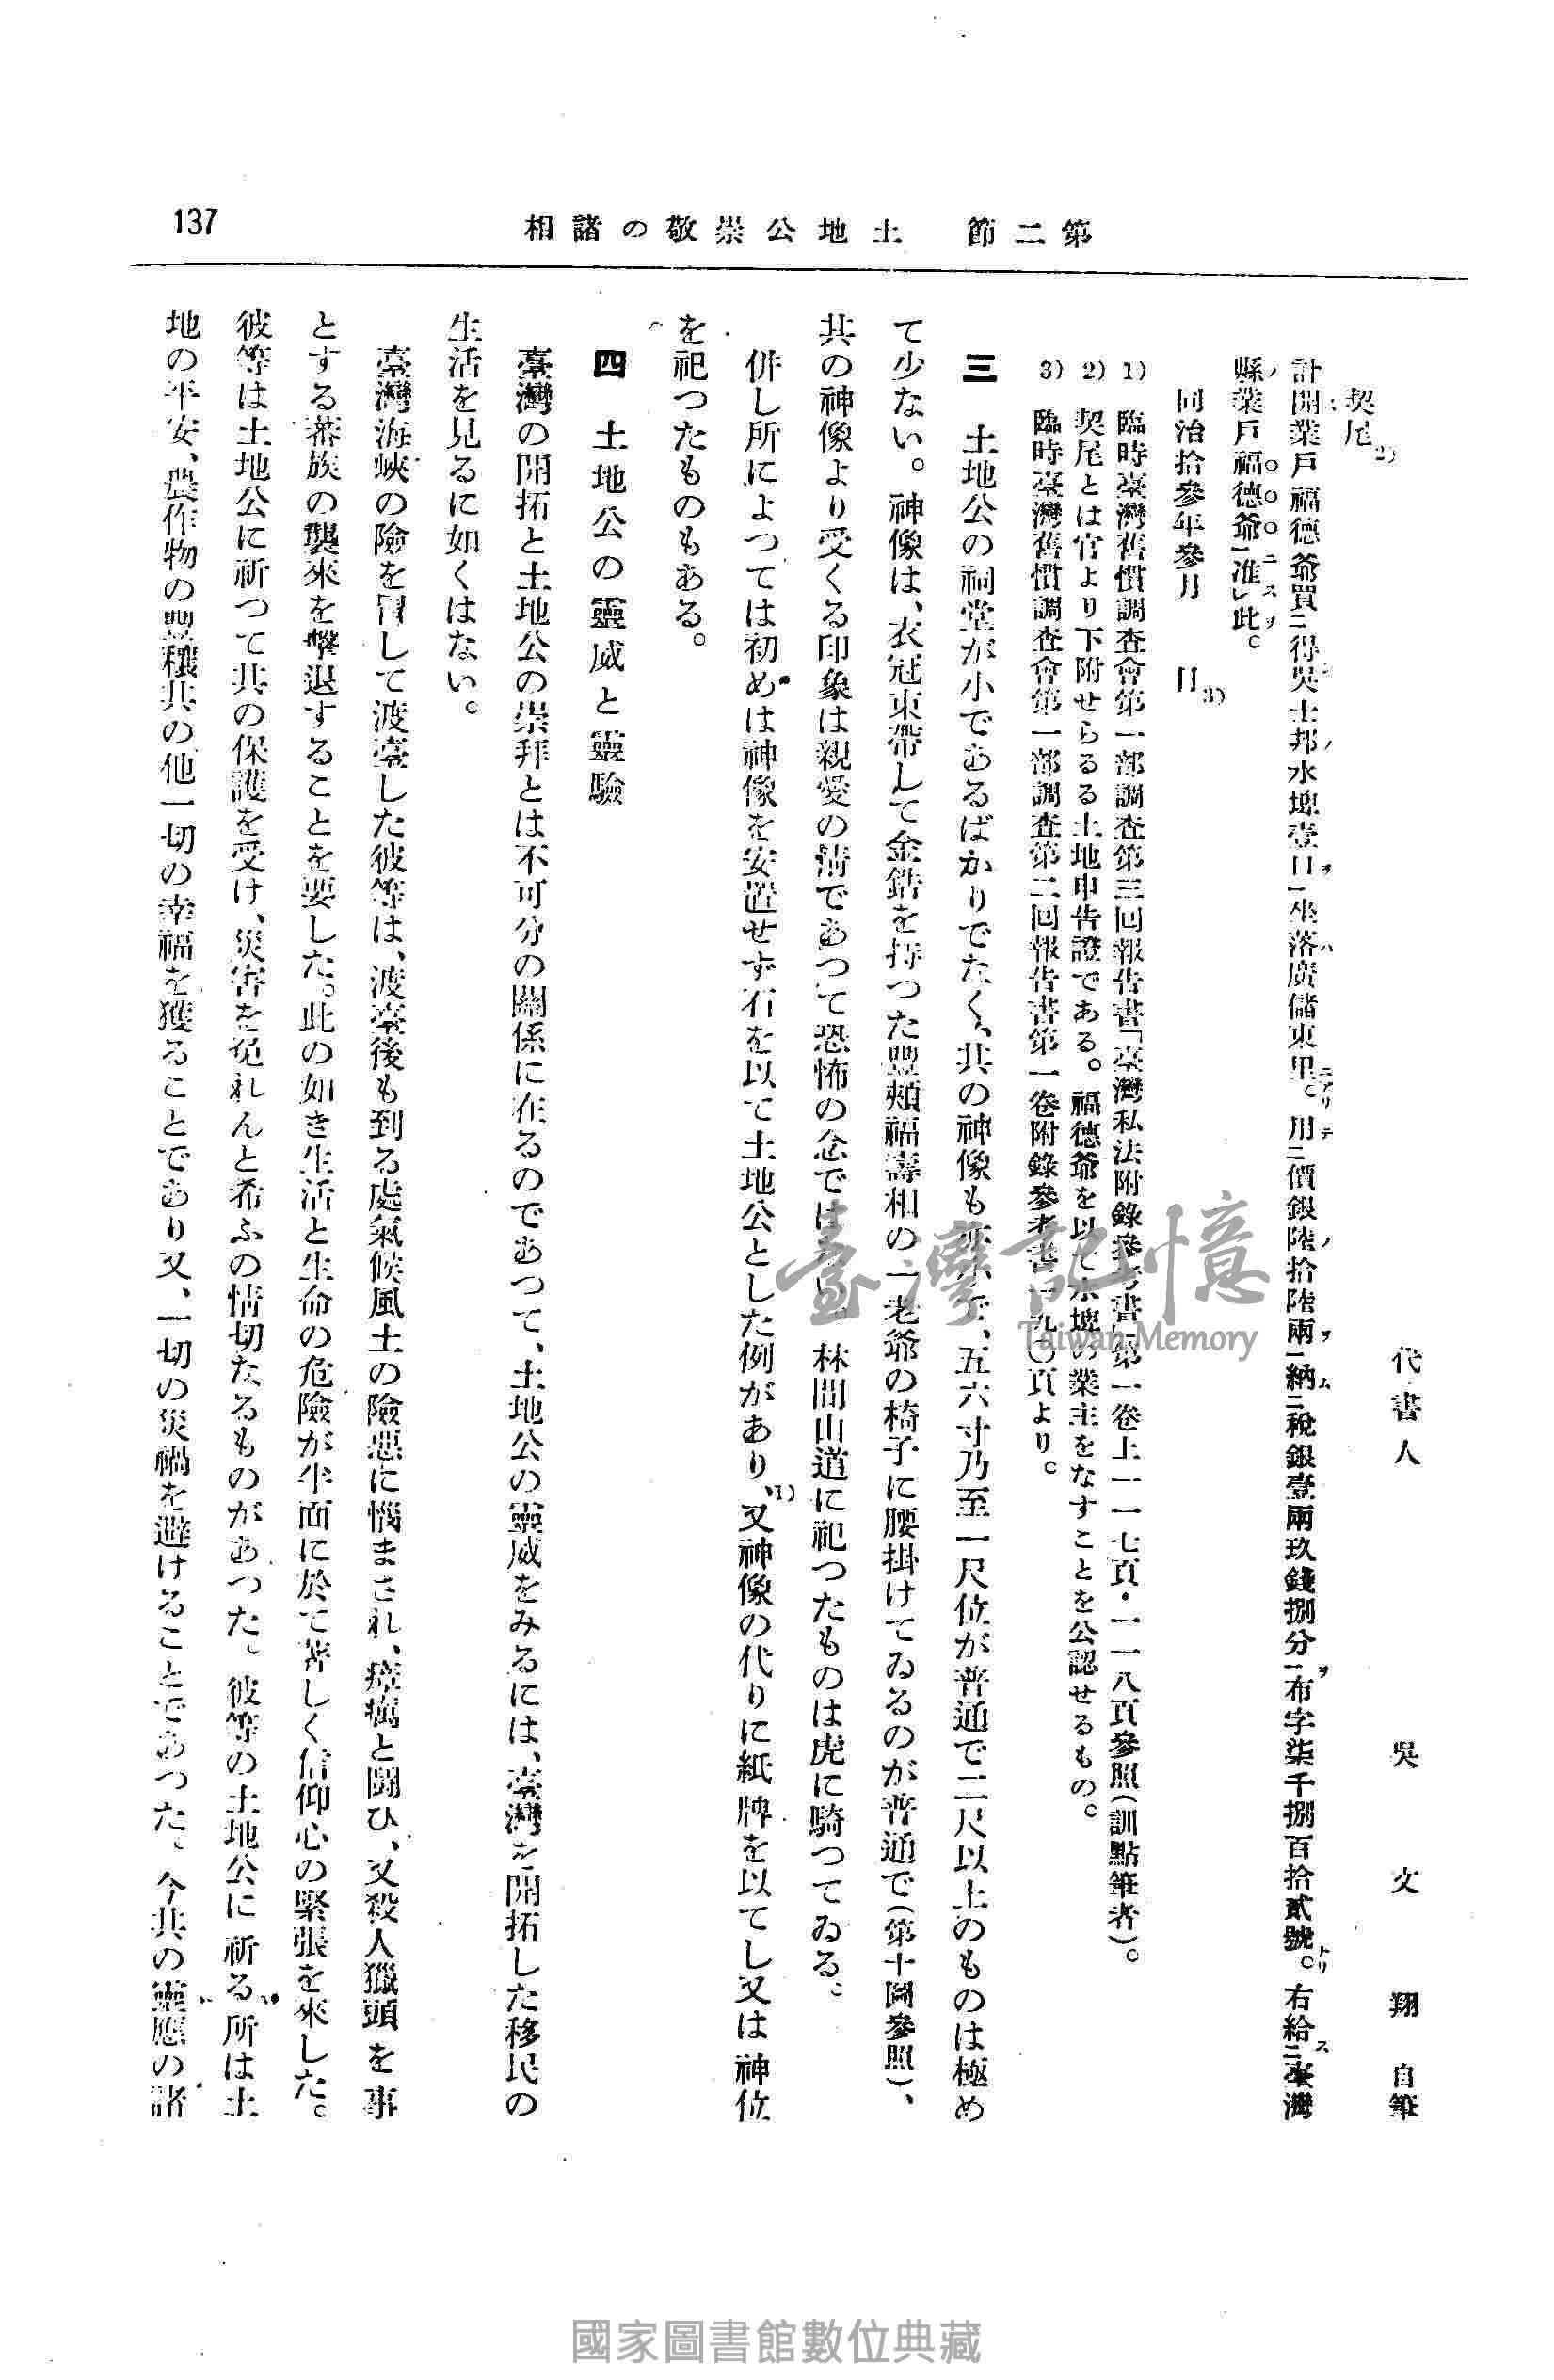 137
第二節 土地公崇敬の諸相
代書人 吳文翔 自筆
契尾 2)
計開業戶福德爺買二得吳士邦水埤壹口一坐落廣儲東里。用二價銀陸拾陸兩一納二稅銀壹兩玖錢捌分一布字柒千捌百拾貳號。右給二臺灣
縣業戶福德爺一准レ此。
同治拾參年參月 日 3)
1) 臨時臺灣舊慣調查會第一部調查第三回報告書「臺灣私法附錄參考書」第一卷上一一七頁・一一八頁參照(訓點筆者)。
2) 契尾とは官より下附せらるる土地申告證である。福德爺を以て水埤の業主をなすことを公認せるもの。
3) 臨時臺灣舊慣調查會第一部調查第二回報告書第一卷附錄參考書一九〇頁より。
三 土地公の祠堂が小であるばかりでなく、其の神像も亦小で、五六寸乃至一尺位が普通で二尺以上のものは極め
て少ない。神像は、衣冠束帶して金錁を持つた豐頰福壽相の一老爺の椅子に腰掛けてゐるのが普通で(第十圖參照)、
其の神像より受くる印象は親愛の情であつて恐怖の念ではない。林間山道に祀つたものは虎に騎つてゐる。
併し所によつては初めは神像を安置せず石を以て土地公とした例があり、1)又神像の代りに紙牌を以てし又は神位
を祀つたものもある。
四 土地公の靈威と靈驗
臺灣の開拓と土地公の崇拜とは不可分の關係に在るのであつて、土地公の靈威をみるには、臺灣を開拓した移民の
生活を見るに如くはない。
臺灣海峽の險を冒して渡臺した彼等は、渡臺後も到る處氣候風土の險惡に惱まされ、瘴癘と鬪ひ、又殺人獵頭を事
とする蕃族の襲來を擊退することを要した。此の如き生活と生命の危險が半面に於て著しく信仰心の緊張を來した。
彼等は土地公に祈つて其の保護を受け、災害を免れんと希ふの情切なるものがあつた。彼等の土地公に祈る所は土
地の平安、農作物の豐穰其の他一切の幸福を獲ることであり又、一切の災禍を避けることであつた。今其の靈應の諸
臺灣記憶
Taiwan Memory
國家圖書館數位典藏